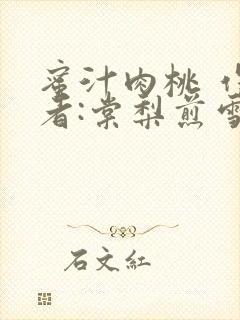 蜜汁肉桃 作
者:棠梨煎雪
石文紅